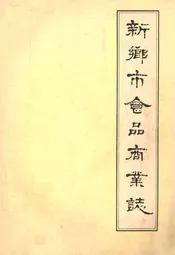 新鄉市食品商業誌